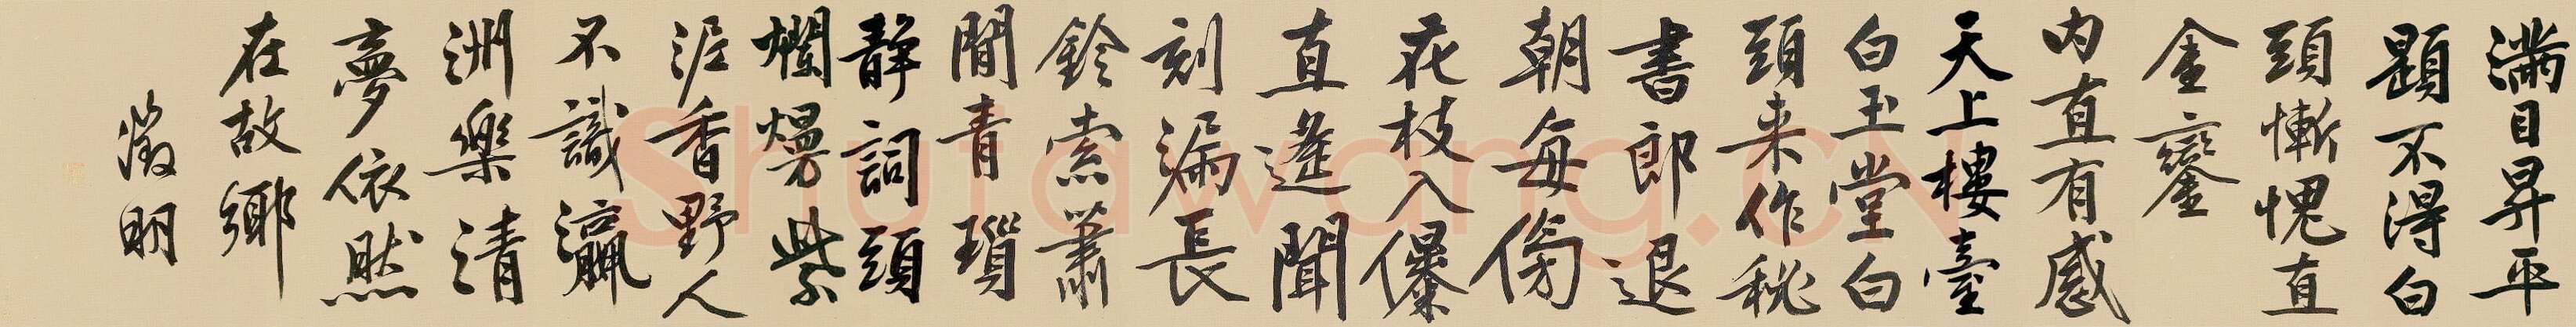 滿目昇平
題不得白
頭慚愧直
金鑾
內直有感
天上樓臺
白玉堂白
頭来作秘
書郎退
朝每傍
花枝入儤
直遙聞
刻漏長
鈴索蕭
閒青瑣
靜詞頭
爛熳紫
泥香野人
不識瀛
洲樂清
夢依然
在故鄉
徵明
Shufawang.CN